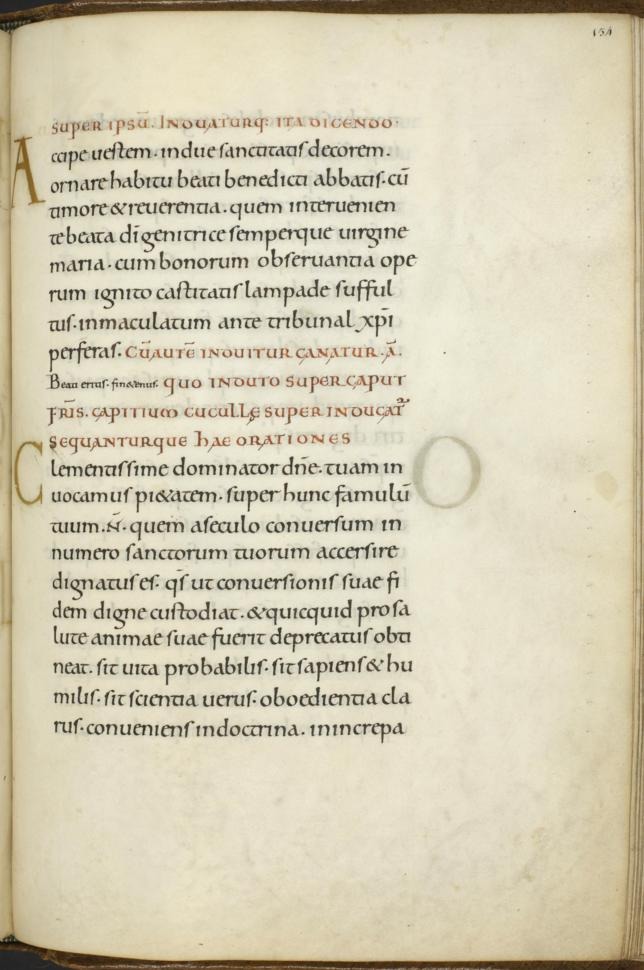 154
SUPER IPSŪ. INDUATURQ: ITA DICENDO·
Accipe uestem· indue sanctitatis decorem·
ornare habitu beati benedicti abbatis· cū
timore & reuerentia· quem interuenien
te beata dī genitrice semperque uirgine
maria· cum bonorum obseruantia ope
rum ignito castitatis lampade sufful
tus· inmaculatum ante tribunal xp̄i
perferas· CŪ AUTĒ INDUITUR CANATUR·Ā·
Beati eritis· QUO INDUTO SUPER CAPUT
FR̄IS· CAPITIUM CUCULLĘ SUPERINDUCAT̄
SEQUANTURQUE HAE ORATIONES
Clementissime dominator dn̄e· tuam in
uocamus pi&atem· super hunc famulū
tuum·N̄· quem a seculo conuersum in
numero sanctorum tuorum accersire
dignatus es· qs̄ ut conuersionis suae fi
dem digne custodiat· & quicquid pro sa
lute animae suae fuerit deprecatus obti
neat· sit uita probabilis· sit sapiens & hu
milis· sit scientia uerus· oboedientia cla
rus· conueniens in doctrina· in increpa